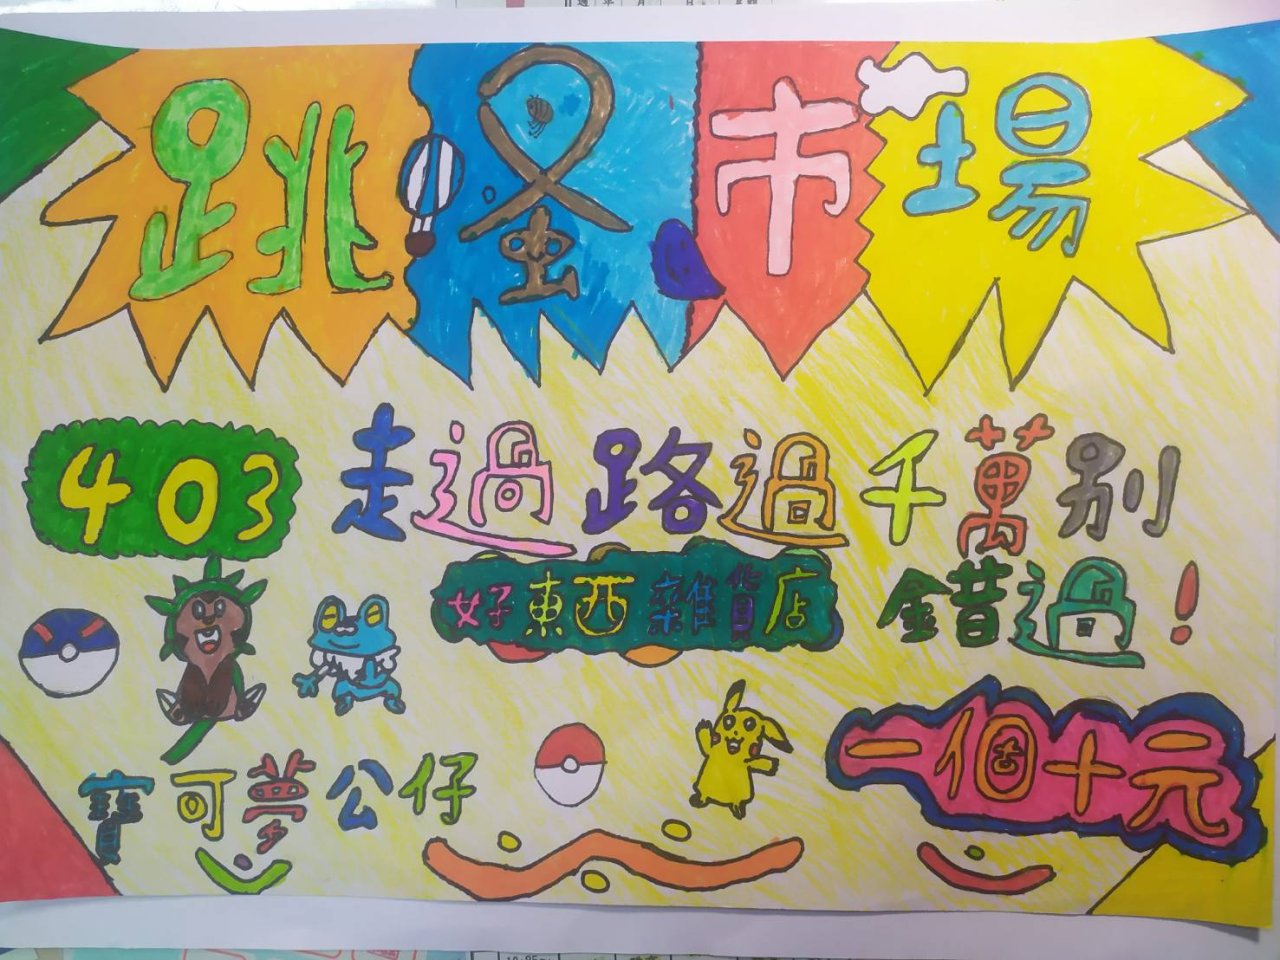 跳蚤市場
403 走過路過千萬別
好東西雜貨店 錯過!
一個十元
寶可夢公仔